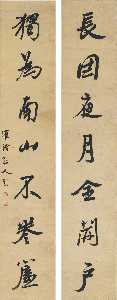 長因夜月金開戶
獨為南山不卷簾